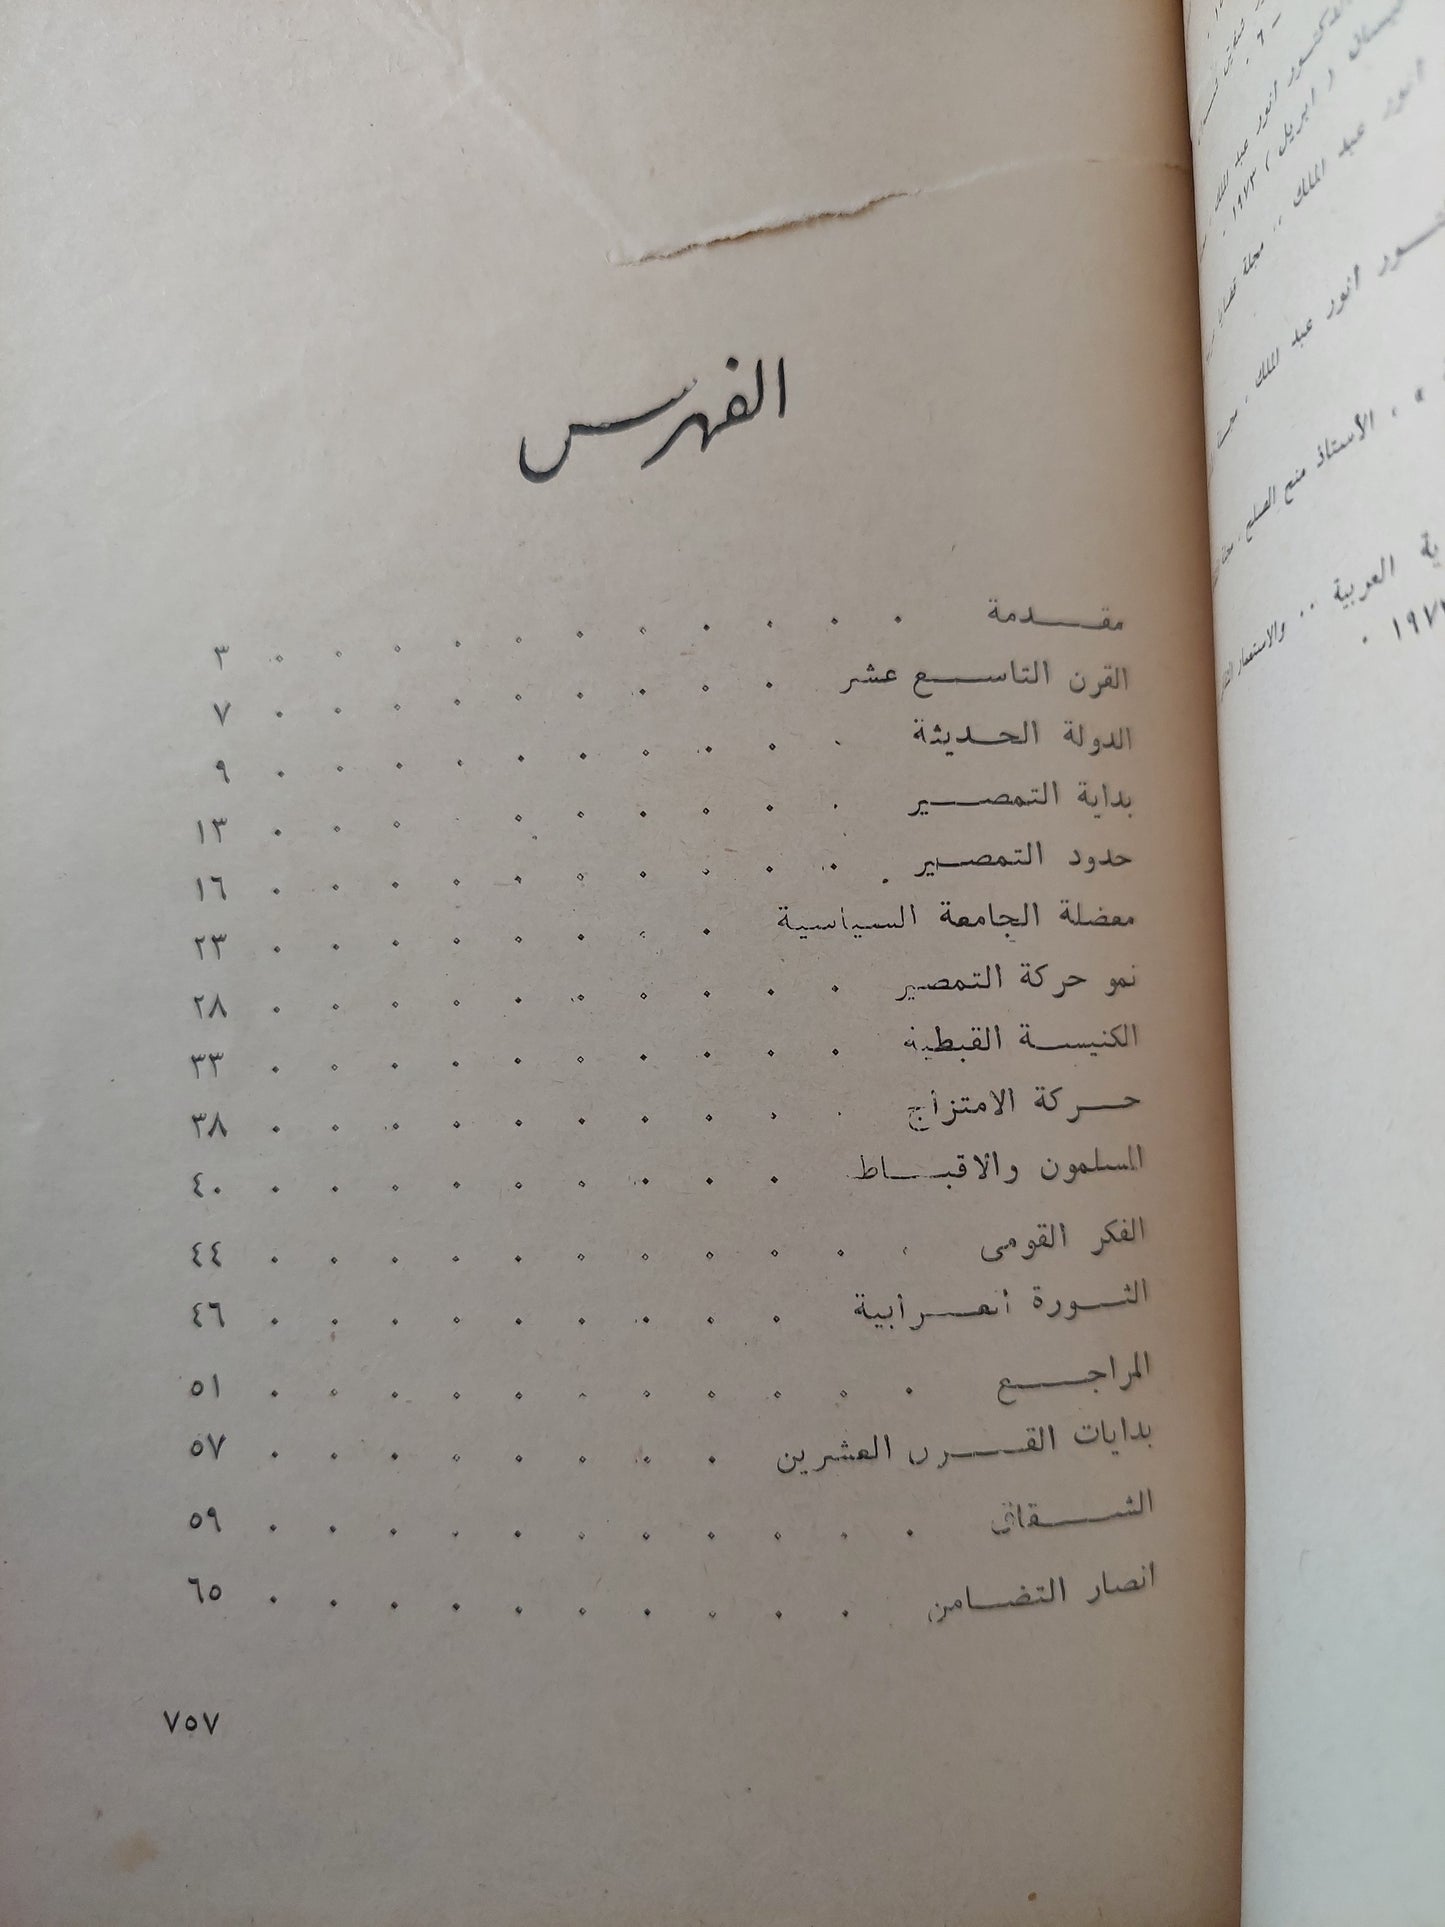 الفهرس
مقدمة ٣
القرن التاسع عشر ٧
الدولة الحديثة ٩
بداية التمصير ١٣
حدود التمصير ١٦
معضلة الجامعة السياسية ٢٣
نمو حركة التمصير ٢٨
الكنيسة القبطية ٣٣
حركة الامتزاج ٣٨
المسلمون والاقباط ٤٠
الفكر القومى ٤٤
الثورة العرابية ٤٦
المراجع ٥١
بدايات القرن العشرين ٥٧
الشقاق ٥٩
انصار التضامن ٦٥
٧٥٧
الدكتور انور عبد الملك
نيسان ( ابريل ) ١٩٧٣ .
انور عبد الملك .. مجلة
انور عبد الملك ،
، الأستاذ منح الصلح ،
العربية .. والاستعمار